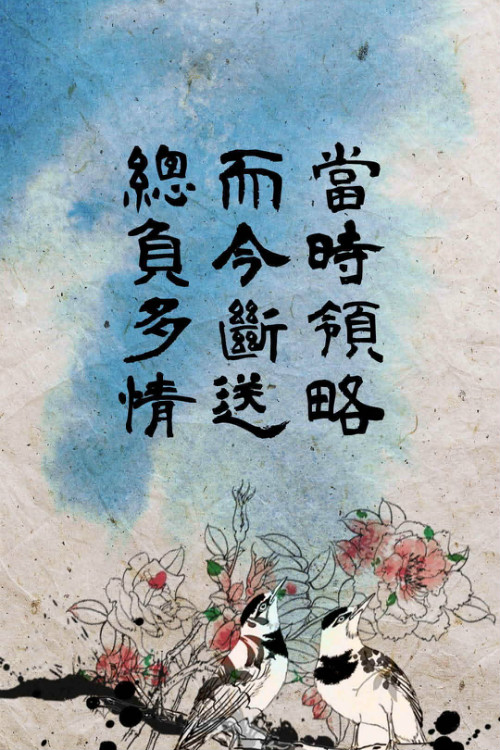 當時領略
而今斷送
總負多情